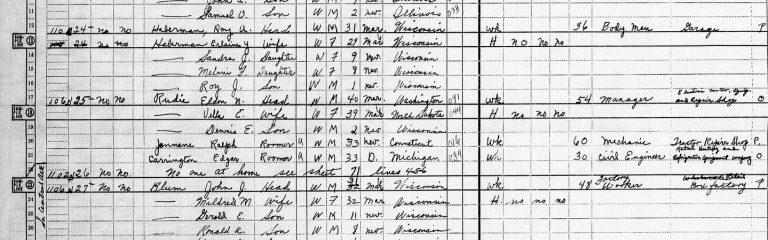 11 John G. Son
12 — Samuel V. Son W M 2 nev. Illinois 033
110 24 no no Haberman, Roy A. Head W M 31 Mar. Wisconsin wk 36 Body Man Garage P
24 no no Haberman Wife W F 29 Mar Wisconsin H no no no
— Sandra J. Daughter W F 9 nev. Wisconsin
— Daughter W F 8 nev. Wisconsin
— Roy J. Son W M 1 nev. Wisconsin
106 25 no no Rudie Eldon N. Head W M 40 Mar. Washington 091 wk 54 Manager and Repair Shop O
— Villa E. Wife W F 39 Mar North Dakota 044 H no no no
— Dennis E. Son W M 2 nev Wisconsin
20 Ralph Roomer W M 33 nev Connecticut 016 wk 60 Mechanic Tractor Repair Shop P
21 Carrington Edgar Roomer W M 33 D. Michigan 034 30 Civil Engineer O
1102 26 no no No one at home see sheet 71 lines
1106 27 no no Blum John J. Head W M Mar Wisconsin wk 48 Factory Worker Box factory P
24 — Mildred M Wife W F 32 Mar Wisconsin H no no no
25 — Gerald E. Son W M 11 nev. Wisconsin
26 — Ronald A. Son W M 8 nev. Wisconsin